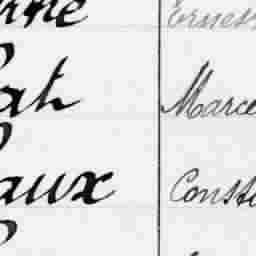 nne Ernes
at Marce
aux Consta